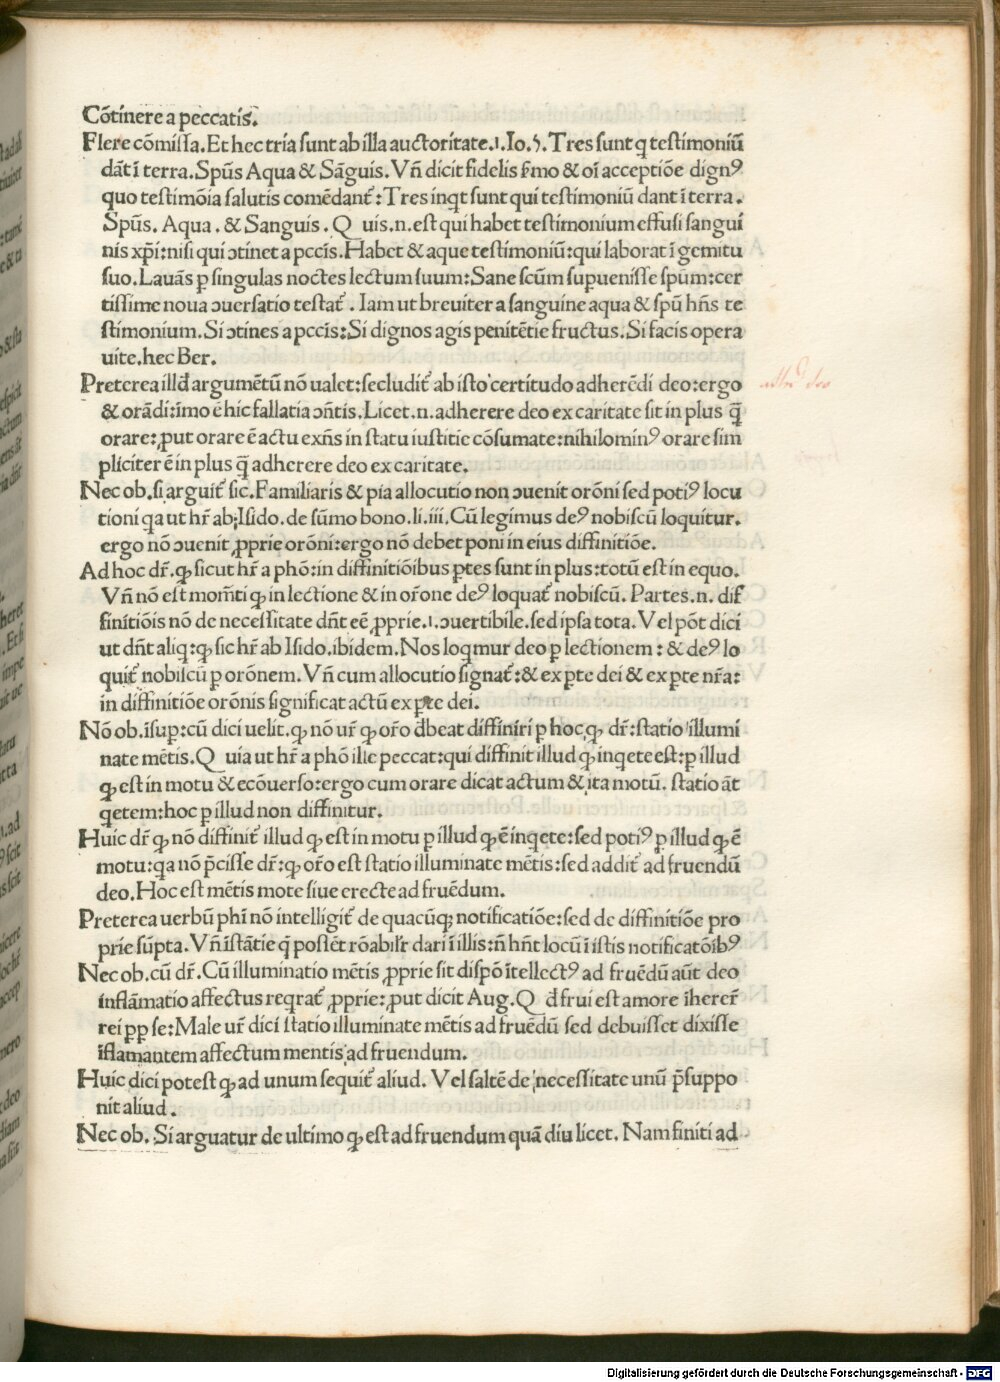 Cõtinere a peccatis.
Flere cõmissa. Et hec tria sunt ab illa auctoritate .1. Io. 5. Tres sunt q testimoniũ
dãt ĩ terra. Spũs Aqua & Sãguis. Vñ dicit fidelis ẜmo & oĩ acceptiõe dignꝰ
quo testimõia salutis comẽdantᷣ: Tres inqt sunt qui testimoniũ dant ĩ terra.
Spũs. Aqua. & Sanguis. Q uis .n. est qui habet testimonium effusi sangui
nis xp̃i: nisi qui ↄtinet a pcc̃is. Habet & aque testimoniũ: qui laborat ĩ gemitu
suo. Lauãs ꝑ singulas noctes lectum suum: Sane sc̃um supuenisse spũm: cer
tissime noua ↄuersatio testatᷣ. Iam ut breuiter a sanguine aqua & spũ hñs te
stimonium. Si ↄtines a pcc̃is: Si dignos agis penitẽtie fructus. Si facis opera
uite. hec Ber.
Preterea illđ argumẽtũ nõ ualet: secluditᷣ ab isto certitudo adherẽdi deo: ergo
& orãdi: ĩmo ẽ hic fallatia ↄñtis. Licet .n. adherere deo ex caritate sit in plus q̃
orare: ꝓut orare ẽ actu exñs in statu iustitie cõsumate: nihilominꝰ orare sim
pliciter ẽ in plus q̃ adherere deo ex caritate.
Nec ob. si arguitᷣ sic. Familiaris & pia allocutio non ↄuenit orõni sed potiꝰ locu
tioni qa ut hr̃ ab Isido. de sũmo bono. li. iii. Cũ legimus deꝰ nobiscũ loquitur.
ergo nõ ↄuenit ꝓprie orõni: ergo nõ debet poni in eius diffinitiõe.
Ad hoc dr̃. ꝙ sicut hr̃ a phõ: in diffinitiõibus ꝑtes sunt in plus: totũ est in equo.
Vñ nõ est mom̃ti ꝙ in lectione & in or̃one deꝰ loquatᷣ nobiscũ. Partes .n. dif
finitiõis nõ de necessitate dñt eẽ ꝓprie .1. ↄuertibile. sed ipsa tota. Vel põt dici
ut dñt aliq: ꝙ sic hr̃ ab Isido. ibidem. Nos loqmur deo ꝑ lectionem: & deꝰ lo
quitᷣ nobiscũ ꝑ orõnem. Vñ cum allocutio signatᷣ: & ex ꝑte dei & ex ꝑte nr̃a:
in diffinitiõe orõnis significat actũ ex ꝑte dei.
Nõ ob. ĩsup: cũ dici uelit. ꝙ nõ ur̃ ꝙ or̃o đbeat diffiniri ꝑ hoc ꝙ dr̃: statio illumi
nate mẽtis. Q uia ut hr̃ a phõ ille peccat: qui diffinit illud ꝙ inqete est: ꝑ illud
ꝙ est in motu & ecõuerso: ergo cum orare dicat actum & ita motũ. statio aũt
qetem: hoc ꝑ illud non diffinitur.
Huic dr̃ ꝙ nõ diffinitᷣ illud ꝙ est in motu ꝑ illud ꝙ ẽ inqete: sed potiꝰ ꝑ illud ꝙ ẽ
motu: qa nõ p̃cisse dr̃: ꝙ or̃o est statio illuminate mẽtis: sed additᷣ ad fruendũ
deo. Hoc est mẽtis mote siue erecte ad fruẽdum.
Preterea uerbũ phĩ nõ intelligitᷣ de quacũqꝫ notificatiõe: sed de diffinitiõe pro
prie sũpta. Vñ ĩstãtie q̃ possẽt rõabilr̃ dari ĩ illis: ñ hñt locũ ĩ istis notificatõibꝰ
Nec ob. cũ dr̃. Cũ illuminatio mẽtis ꝓprie sit dispõ ĩtellectꝰ ad fruẽdũ aũt deo
inflãmatio affectus reqratᷣ ꝓprie: ꝓut dicit Aug. Q đ frui est amore ĩherer̃
rei ꝓꝑ se: Male ur̃ dici statio illuminate mẽtis ad fruẽdũ sed debuisset dixisse
ĩflamantem affectum mentis ad fruendum.
Huic dici potest ꝙ ad unum sequitᷣ aliud. Vel saltẽ de necessitate unũ p̃suppo
nit aliud.
Nec ob. Si arguatur de ultimo ꝙ est ad fruendum quã diu licet. Nam finiti ad
Digitalisierung gefördert durch die Deutsche Forschungsgemeinschaft - DFG